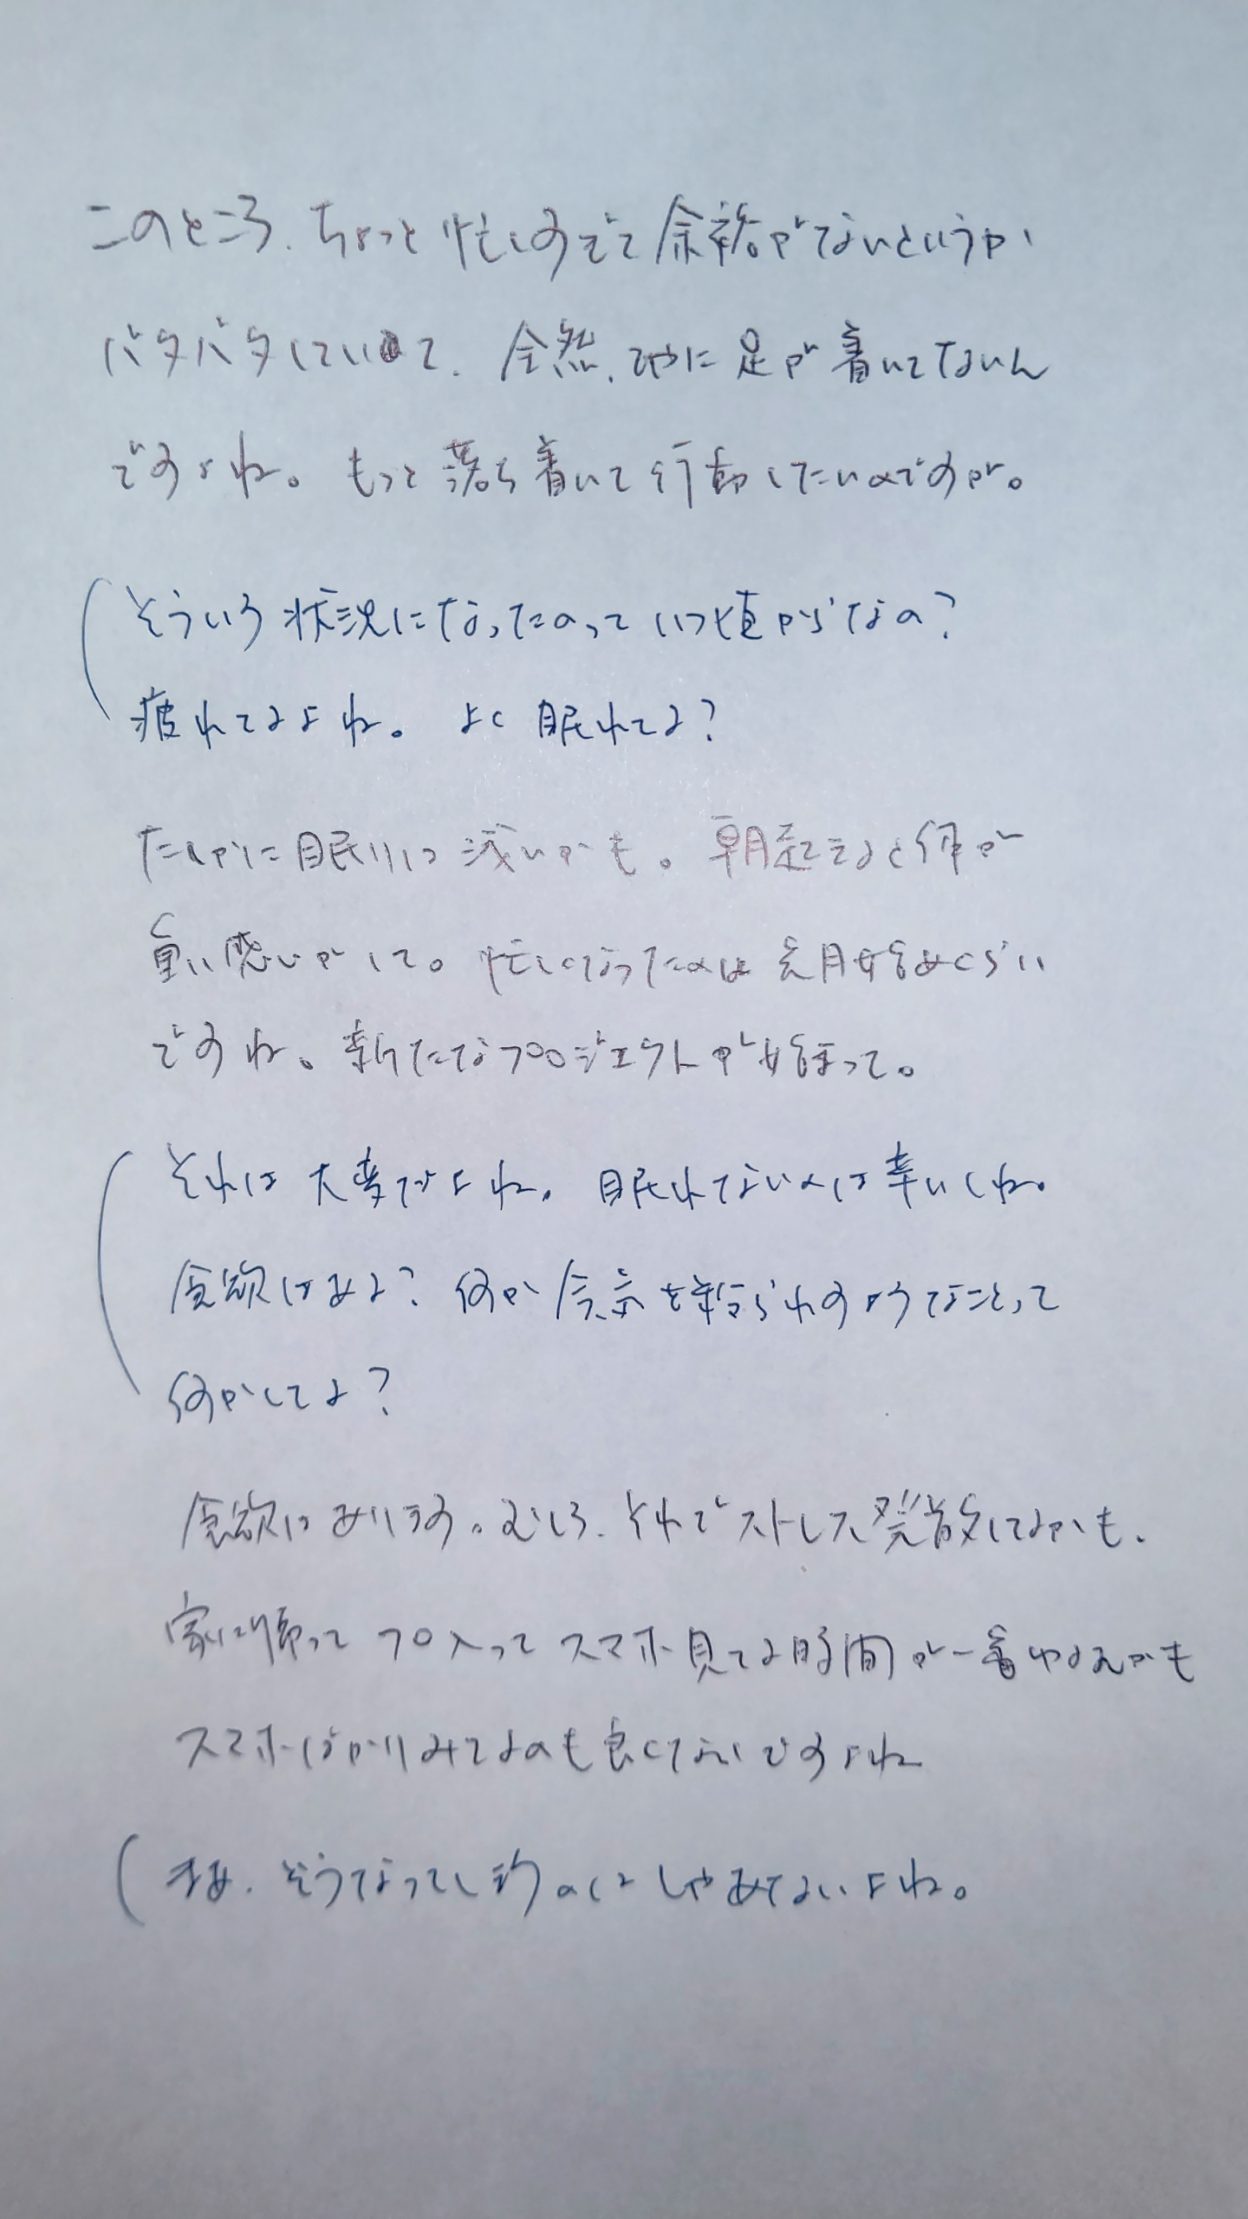 このところ、ちょっと忙しすぎて余裕がないというか
バタバタしていて、全然、地に足が着いてないん
ですよね。もっと落ち着いて行動したいのですが。
そういう状況になったのっていつ頃からなの?
疲れてるよね。よく眠れてる?
たしかに眠りは浅いかも。朝起きると体が
重い感じがして。忙しくなったのは先月始めくらい
ですね。新たなプロジェクトが始まって。
それは大変だよね。眠れてないのは辛いしね。
食欲はある?何か今気を紛らわすようなことって
何かしてる?
食欲はあります。むしろ、それでストレス発散してるかも、
家に帰ってフロ入ってスマホ見てる時間が一番やるえかも
スマホばかりみてるのも良くないですよね
まあ、そうなってしまうのはしゃあないよね。